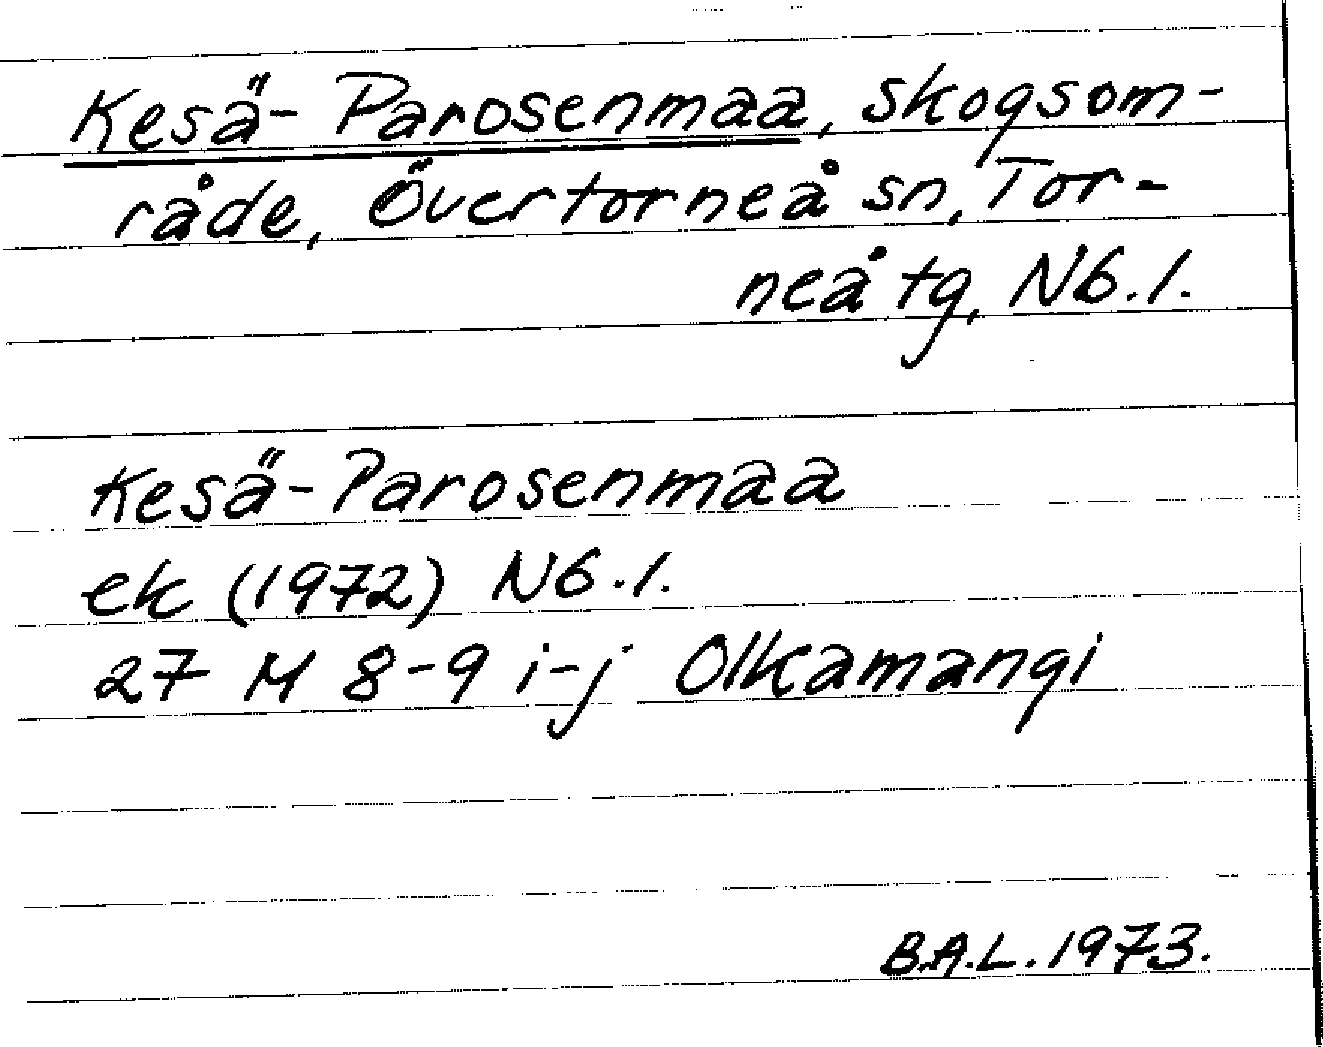 Kesä-Parosenmaa, skogsom-
råde, Övertorneå sn, Tor-
neå tg, Nb.l.
Kesä-Parosenmaa
ek (1972) Nb.l.
27 M 8-9 i-j Olkamangi
B.A.L. 1973.